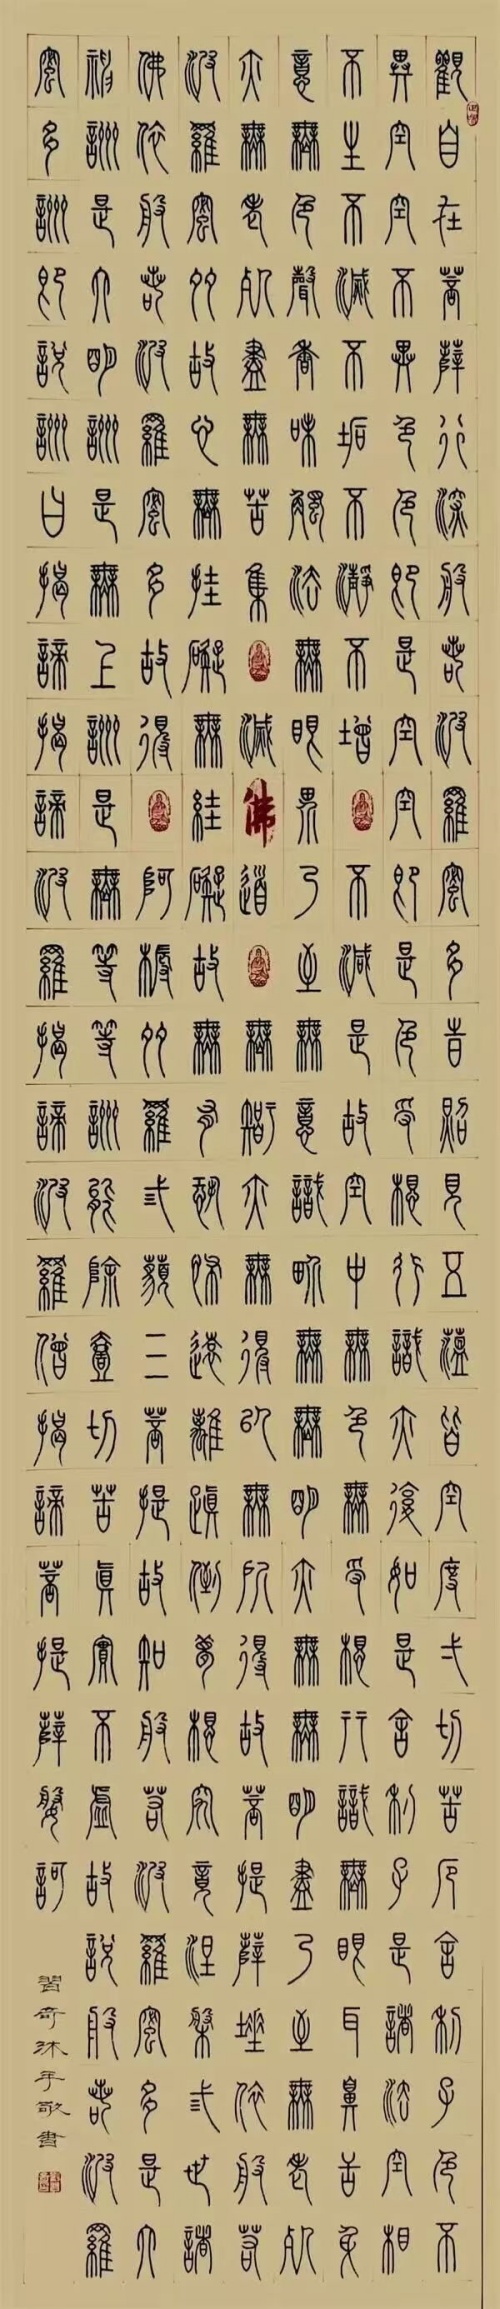 觀自在菩薩行深般若波羅蜜多時照見五蘊皆空度一切苦厄舍利子色不
異空空不異色色即是空空即是色受想行識亦復如是舍利子是諸法空相
不生不滅不垢不淨不增不減是故空中無色無受想行識無眼耳鼻舌身
意無色聲香味觸法無眼界乃至無意識界無無明亦無無明盡乃至無老死
亦無老死盡無苦集滅佛道無智亦無得以無所得故菩提薩埵依般若
波羅蜜多故心無挂礙無絓礙故無有恐怖遠離顛倒夢想究竟涅槃三世諸
佛依般若波羅蜜多故得阿耨多羅三藐三菩提故知般若波羅蜜多是大
神詶是大明詶是無上詶是無等等詶能除一切苦眞實不虛故說般若波羅
蜜多詶即說詶曰揭諦揭諦波羅揭諦波羅僧揭諦菩提薩婆訶
習奇沐手敬書